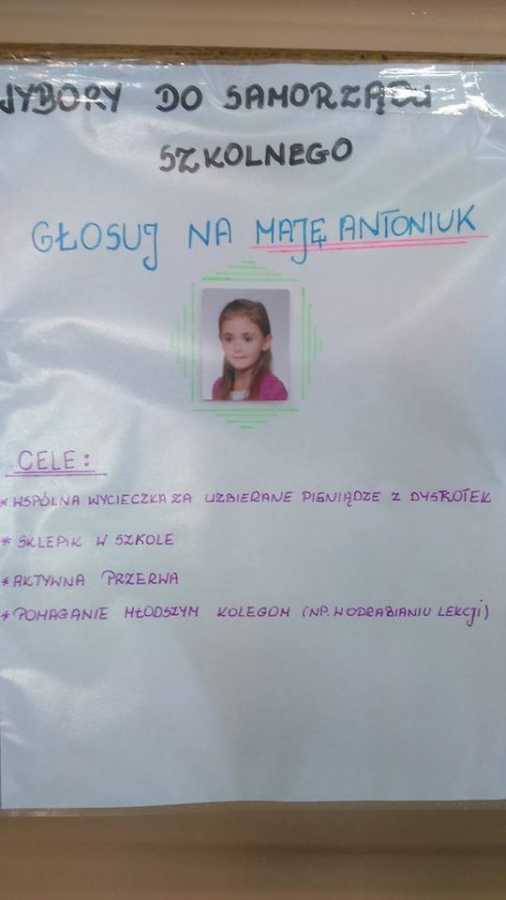 WYBORY DO SAMORZĄDU
SZKOLNEGO
GŁOSUJ NA MAJĘ ANTONIUK
CELE:
* WSPÓLNA WYCIECZKA ZA UZBIERANE PIENIĄDZE Z DYSKOTEK
* SKLEPIK W SZKOLE
* AKTYWNA PRZERWA
* POMAGANIE MŁODSZYM KOLEGOM (NP. W ODRABIANIU LEKCJI)